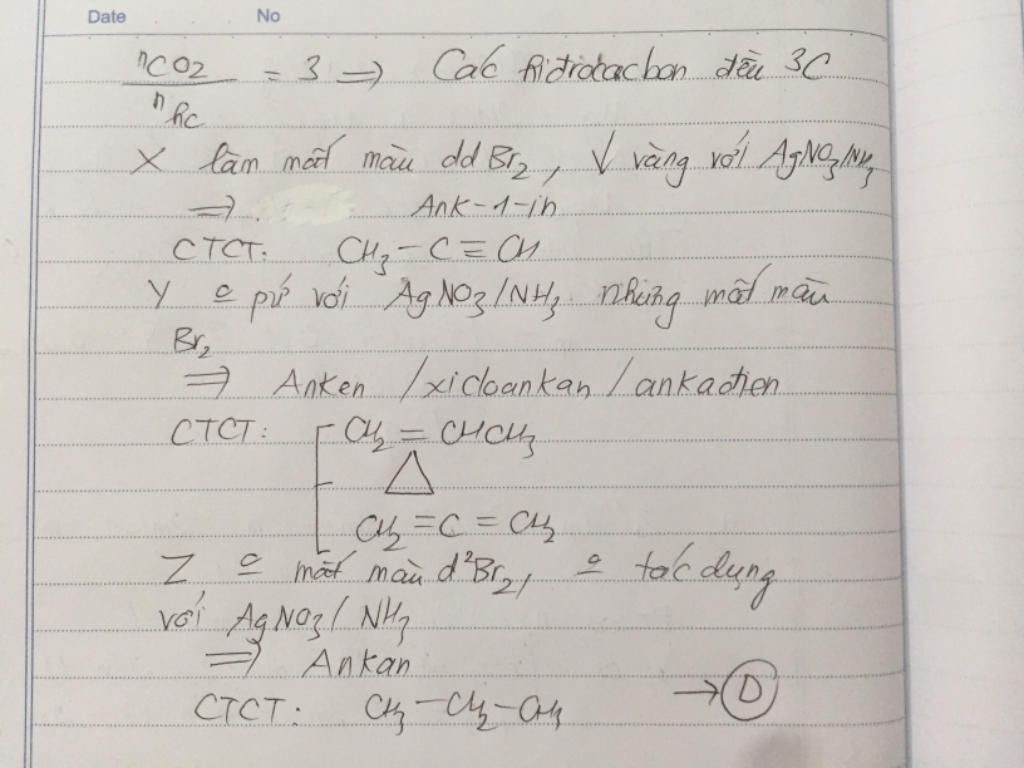 Date No
nCO2 / nhc = 3 => Các hiđrocacbon đều 3C
X làm mất màu dd Br2, ↓ vàng với AgNO3/NH3
=> Ank-1-in
CTCT: CH3 - C ≡ CH
Y o pứ với AgNO3/NH3 nhưng mất màu
Br2
=> Anken /xicloankan / ankađien
CTCT: CH2 = CHCH3
△
CH2 = C = CH2
Z o mất màu d²Br2, o tác dụng
với AgNO3/ NH3
=> Ankan
CTCT: CH3 - CH2 - CH3 → D